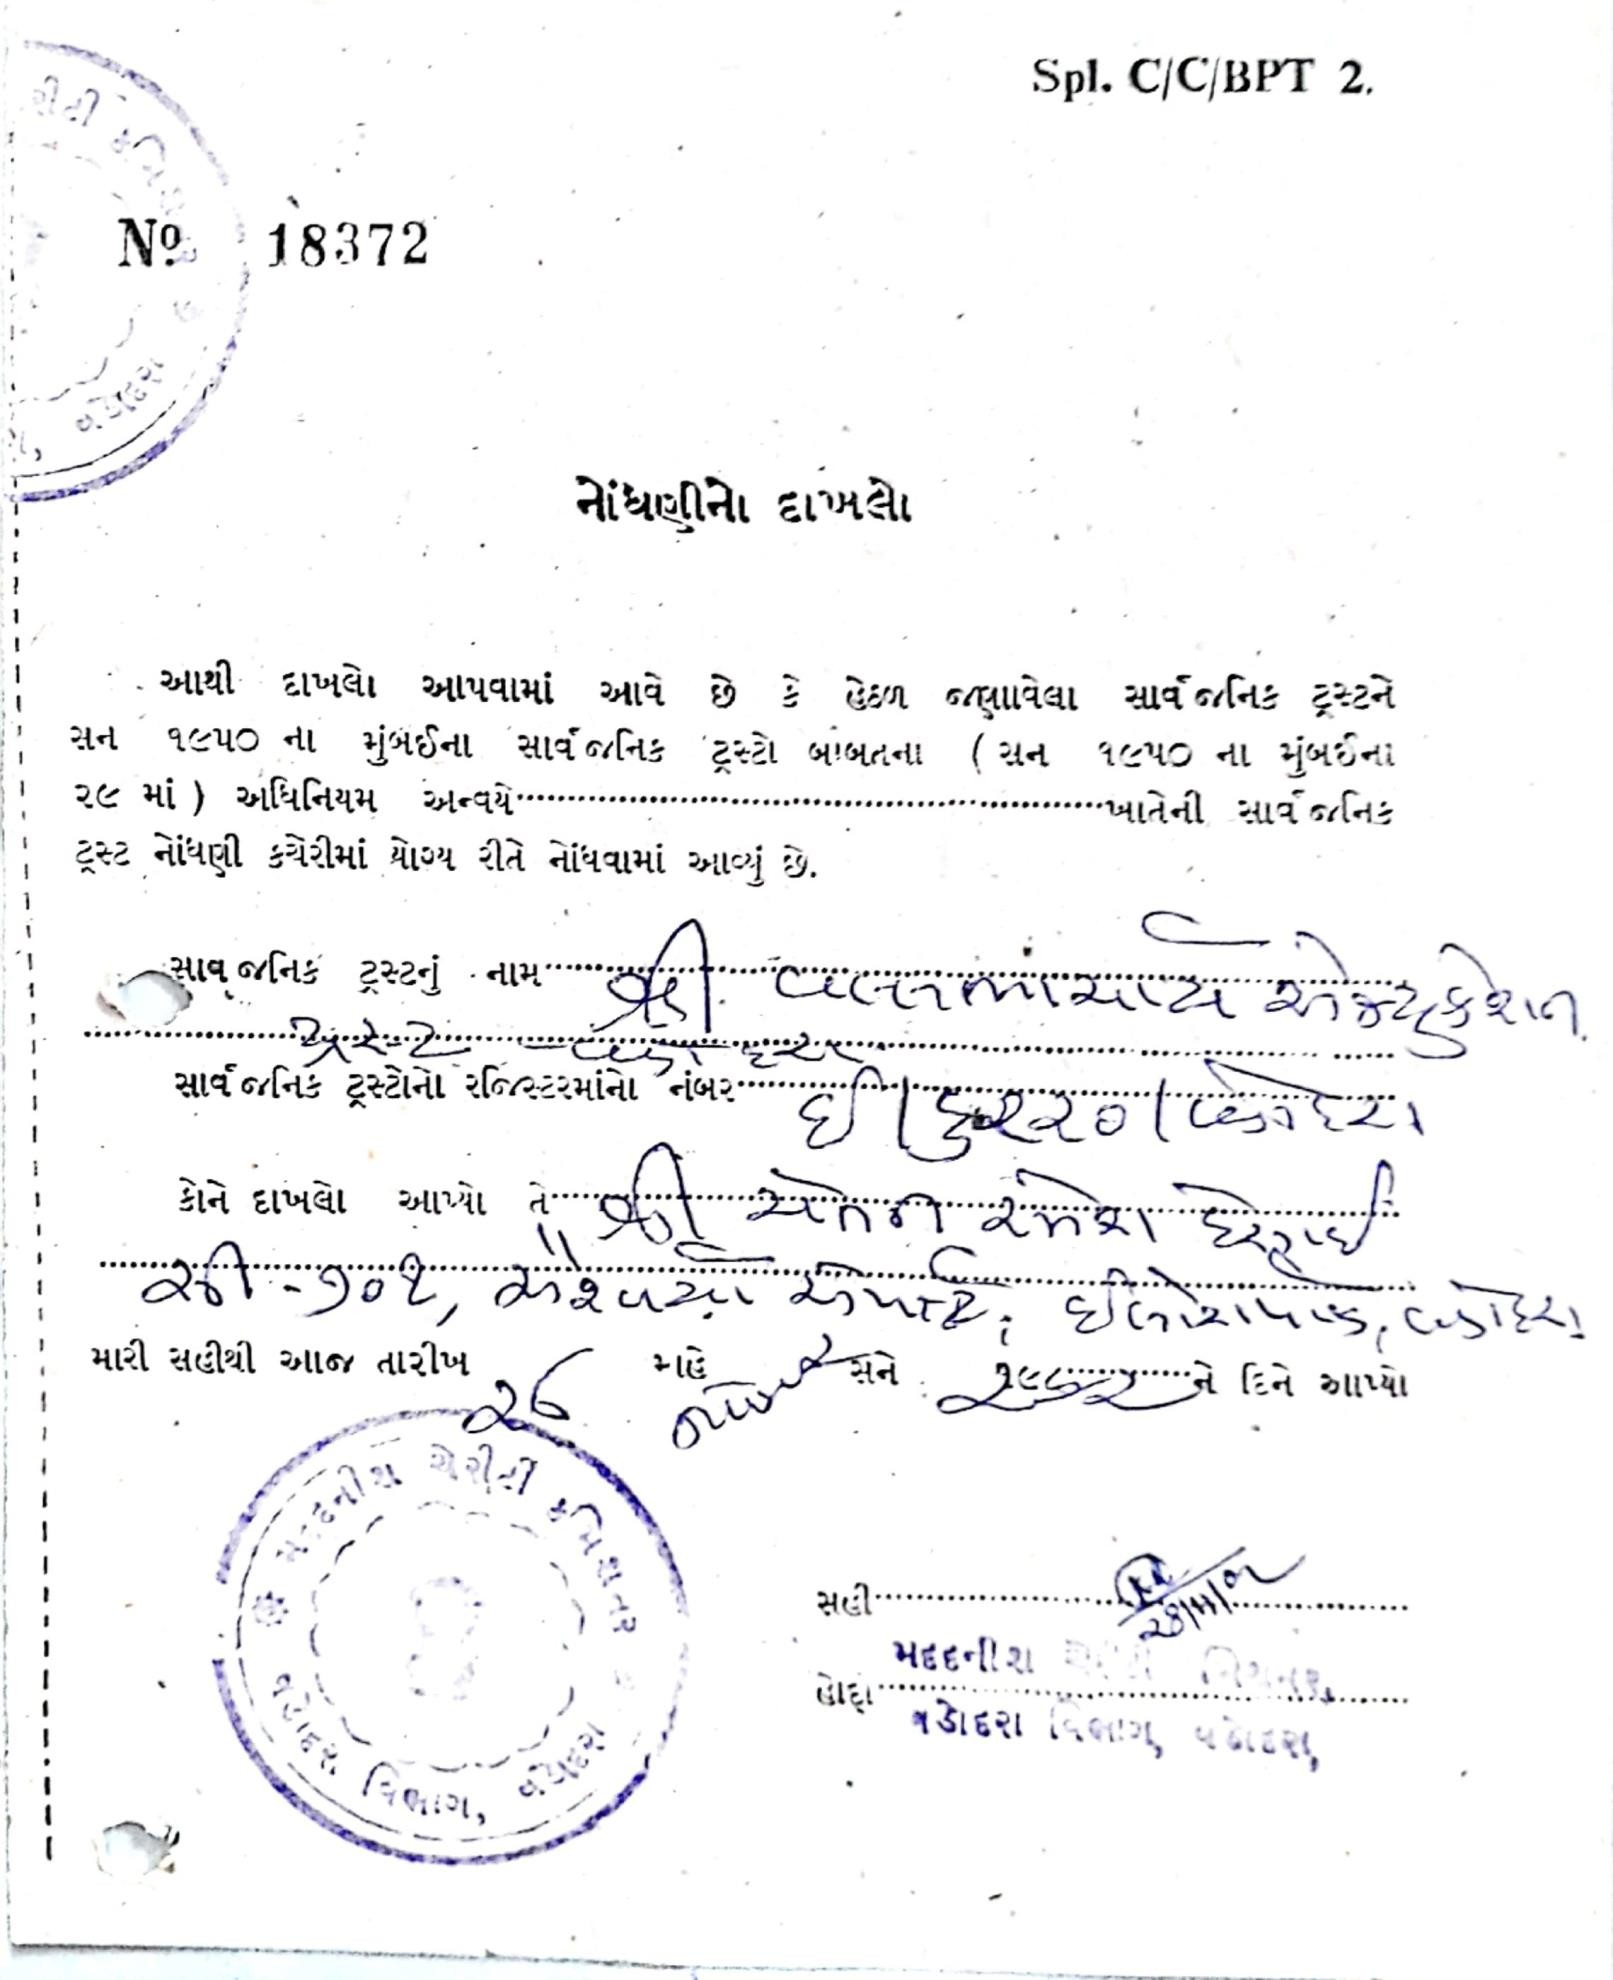 Spl. C/C/BPT 2.
No 18372
નોંધણીનો દાખલો
આથી દાખલો આપવામાં આવે છે કે હેઠળ જણાવેલા સાર્વજનિક ટ્રસ્ટને
સન ૧૯૫૦ ના મુંબઈના સાર્વજનિક ટ્રસ્ટો બાબતના ( સન ૧૯૫૦ ના મુંબઈના
૨૯ માં ) અધિનિયમ અન્વયે ખાતેની સાર્વજનિક
ટ્રસ્ટ નોંધણી કચેરીમાં યોગ્ય રીતે નોંધવામાં આવ્યું છે.
સાર્વજનિક ટ્રસ્ટનું નામ શ્રી વલ્લભાચાર્ય એજ્યુકેશન
ટ્રસ્ટ - વડોદરા
સાર્વજનિક ટ્રસ્ટોનો રજિસ્ટરમાંનો નંબર ઈ/ /વડોદરા
કોને દાખલો આપ્યો તે શ્રી રમેશ દેસાઈ
વડોદરા
મારી સહીથી આજ તારીખ ૨૬ માહે સને ને દિને આપ્યો
મદદનીશ ચેરીટી કમિશનર
વડોદરા વિભાગ, વડોદરા
સહી
મદદનીશ
હોદ્દો
વડોદરા વિભાગ, વડોદરા